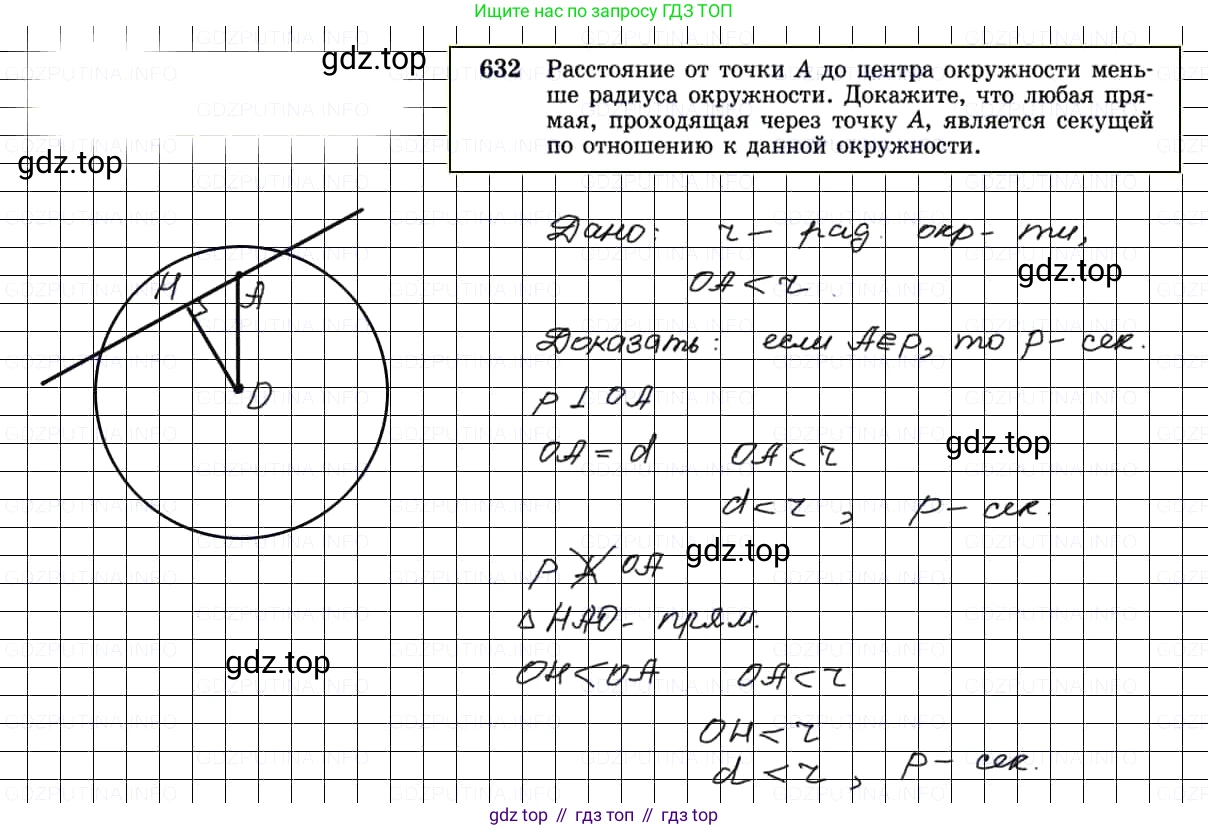 Ищите нас по запросу ГДЗ ТОП
gdz.top
632 Расстояние от точки A до центра окружности мень-
ше радиуса окружности. Докажите, что любая пря-
мая, проходящая через точку A, является секущей
по отношению к данной окружности.
gdz.top
Дано: r – рад. окр-ти,
gdz.top
OA < r.
H
A
Доказать: если A∈p, то p – сек.
O
p ⊥ OA
gdz.top
OA = d OA < r
d < r, p – сек.
gdz.top
p ⊥̸ OA
△ HAO – прям.
gdz.top
OH < OA OA < r
OH < r
d < r, p – сек.
gdz top // гдз топ // гдз top